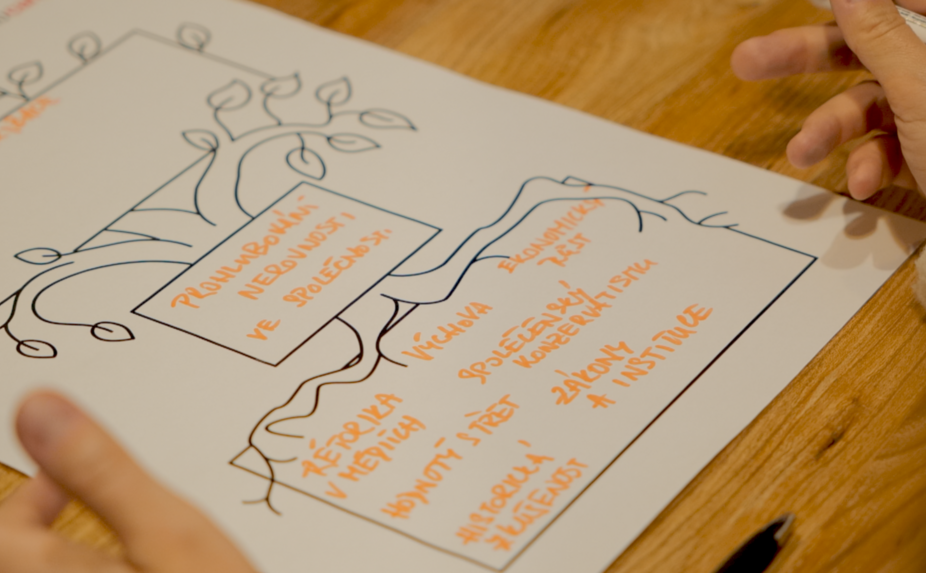 PROHLUBOVÁNÍ
NEROVNOSTI
VE SPOLEČNOSTI
EKONOMICKÝ
VÝCHOVA
SPOLEČENSKÝ
KONZERVATISMU
ZÁKONY
A INSTITUCE
RÉTORIKA
V MÉDIÍCH
HODNOTY STŘET
HISTORICKÁ
ZKUŠENOST